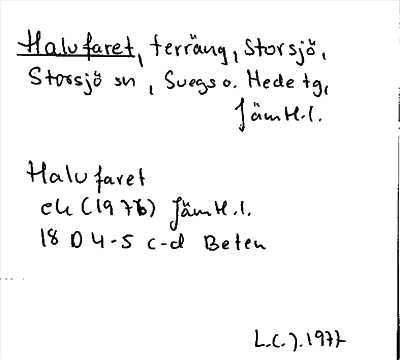 Halvfaret, terräng, Storsjö,
Storsjö sn, Svegs o. Hede tg,
Jämtl.l.
Halvfaret
ek (1976) Jämtl.l.
18 D 4-5 c-d Beten
L.C.J. 1977